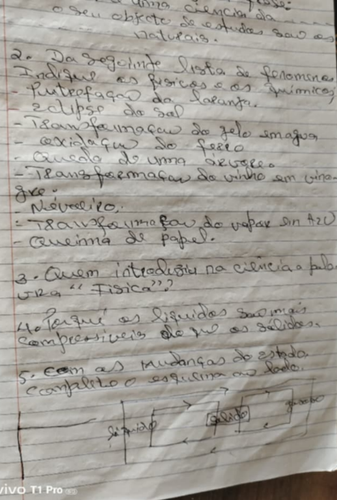 uma ciência da
o seu objecto de estudos são os
naturais.
2. Da seguinte lista de fenomenos
Indique os físicos e os químicos,
- Putrefaçao da laranja.
- eclipse do sol
- Transformaçao do gelo em agua
- oxidaçao do ferro
- Queda de uma árvore.
- Transformaçao do vinho em vina-
gre.
- Nevoeiro.
- Transformaçao do vapor em H2O
- Queima de papel.
3. Quem introduziu na ciência a pala-
vra "Física"?
4. Porquê os líquidos são mais
compressíveis do que os sólidos.
5. Com as mudanças de estado
complete o esquema ao lado.
líquido
sólido
gasoso
vivo T1 Pro